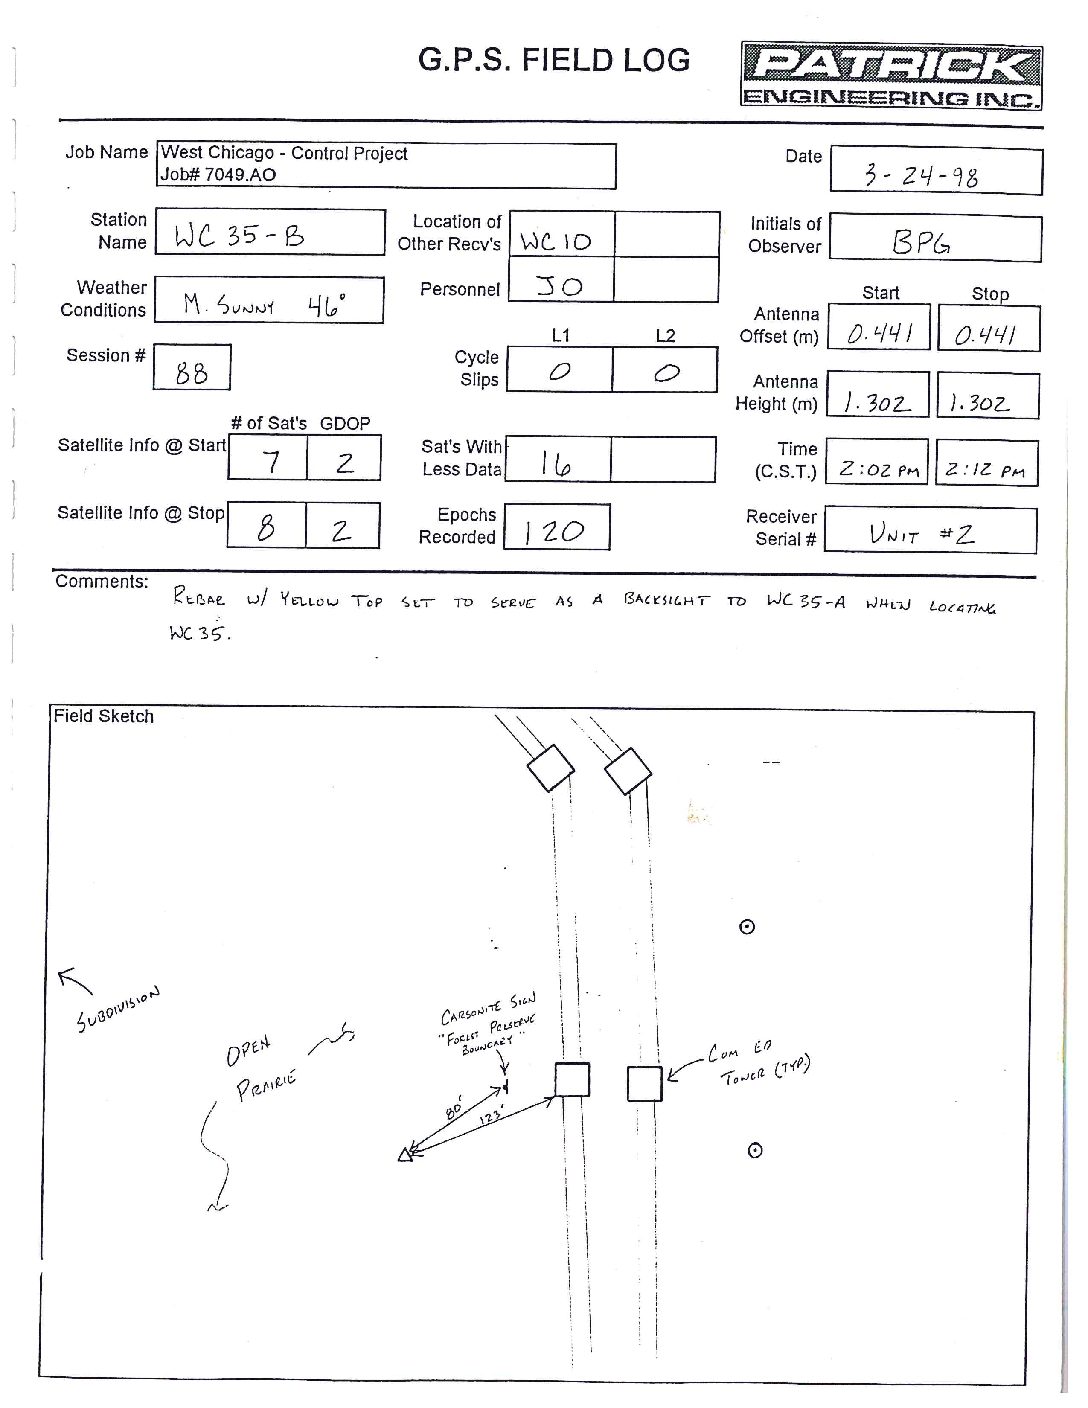 G.P.S. FIELD LOG
PATRICK
ENGINEERING INC.
Job Name West Chicago - Control Project
Job# 7049.AO
Date 3-24-98
Station Name WC 35-B
Location of Other Recv's WC 10
Initials of Observer BPG
Weather Conditions M. SUNNY 46°
Personnel JO
Start Stop
Antenna Offset (m) 0.441 0.441
Session # 88
L1 L2
Cycle Slips 0 0
Antenna Height (m) 1.302 1.302
# of Sat's GDOP
Satellite Info @ Start 7 2
Sat's With Less Data 16
Time (C.S.T.) 2:02 PM 2:12 PM
Satellite Info @ Stop 8 2
Epochs Recorded 120
Receiver Serial # UNIT #2
Comments:
REBAR W/ YELLOW TOP SET TO SERVE AS A BACKSIGHT TO WC 35-A WHEN LOCATING
WC 35.
Field Sketch
SUBDIVISION
OPEN
PRAIRIE
CARSONITE SIGN
"FOREST PRESERVE
BOUNDARY"
80'
123'
COM ED
TOWER (TYP.)